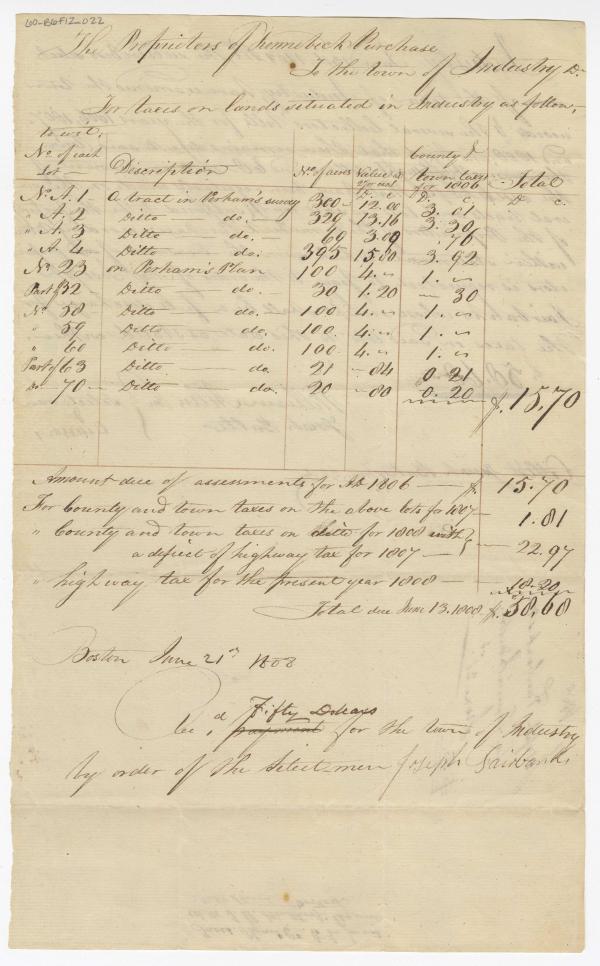 60-B6F12_022
The Proprietors of Kennebeck Purchase
To the town of Industry Dr
For taxes on lands situated in Industry as follow,
to wit,
No. of each Lot — Discription No. of acres Value at County & town taxes for 1806 Total
D. c. D. c. D c.
No. A. 1 — a tract in Perham's survey 300 — 12.00 3.01
" A. 2 Ditto — do. — 329 13.16 3.30
" A. 3 Ditto do. — 69 3.09 .76
" A. 4 Ditto do. 395 15.80 3.92
No. 23 on Perham's Plan 100 4. " 1. "
Part of 32 — Ditto do. — 30 1.20 — 30
No. 58 Ditto do. — 100 4. " 1. "
" 59 Ditto do. 100. 4. " 1. "
" 60 Ditto do. 100. 4. " 1. "
Part of 63 Ditto do. 21 — 84 0.21
Do 70 — Ditto do. 20 — 80 0.20 $.15,70
Amount due of assessments for AD 1806 — $. 15.70
For County and town taxes on the above lots for 1807 — 1.81
" County and town taxes on ditto for 1808 with
a defect of highway tax for 1807 — } — 22.97
" highway tax for the present year 1808 — 18.20
Total due June 13. 1808 $.58,68
Boston June 21st 1808
Recd, Fifty Dolears
payment for the town of Industry
by order of the Select-men Joseph Fairbanks